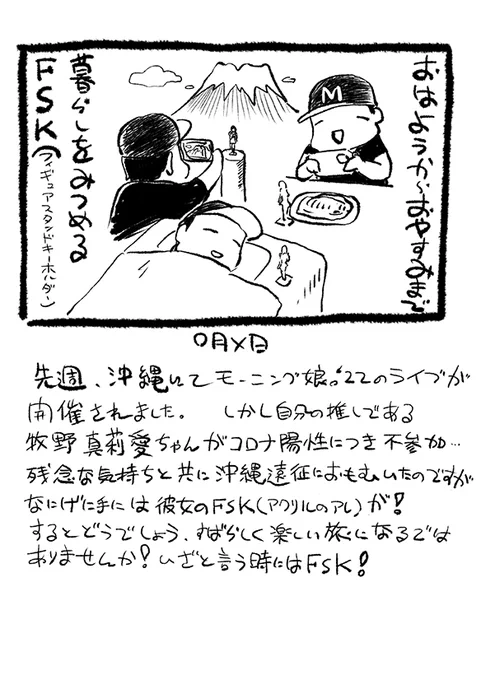 おはようからおやすみまで
M
暮らしをみつめる
FSK(フィギュアスタンドキーホルダー)
〇月×日
先週、沖縄にてモーニング娘。'22のライブが
開催されました。 しかし自分の推しである
牧野真莉愛ちゃんがコロナ陽性につき不参加…
残念な気持ちと共に沖縄遠征におもむいたのですが
なにげに手には彼女のFSK(アクリルのアレ)が!
するとどうでしょう、すばらしく楽しい旅になるでは
ありませんか!いざと言う時にはFSK!